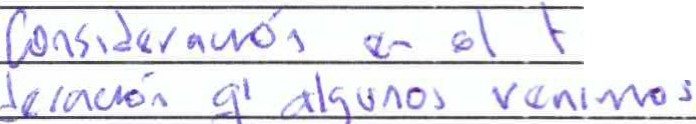 Consideración en el t
deración q' algunos venimos